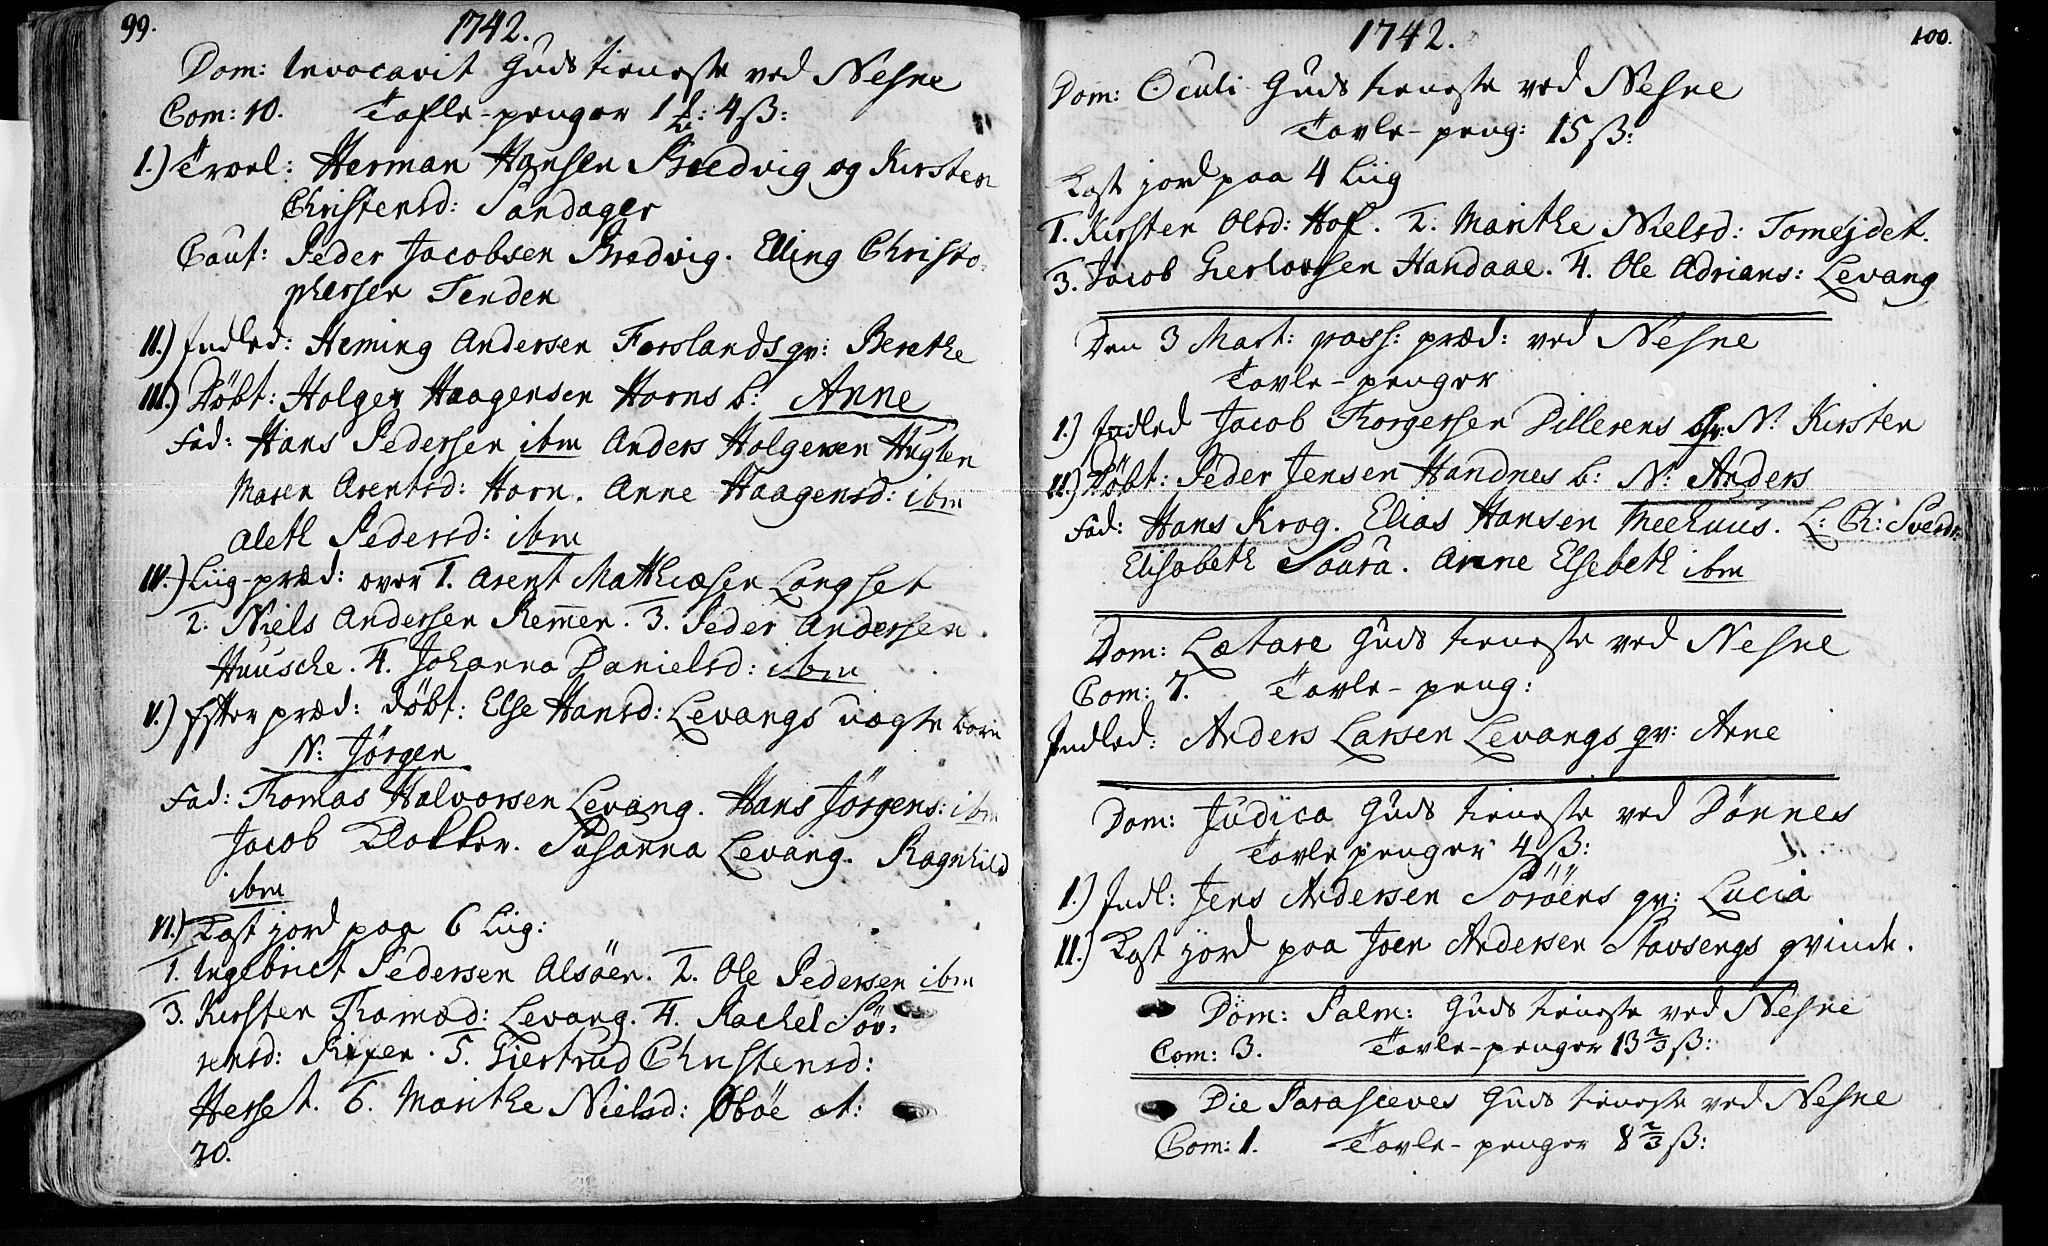 99.
1742.
Dom: Invocavit Guds tieneste ved Nesne
Com: 10. Tafle-penger 1 : 4 ß:
I.) Trol: Herman Hansen Bredvig og Kirsten
Christensd: Sandager
Caut: Peder Jacobsen Bredvig. Elling Christo-
phersen Tenden
II.) Indled: Heming Andersen Forslands qv: Berethe
III.) Döbt: Holger Haagensen Horns b: Anne
Fad: Hans Pedersen ibm Anders Holgersen Hugten
Maren Arentsd: Horn. Anne Haagensd: ibm
Aleth Pedersd: ibm
IV.) Liig-præd: over 1. Arent Matthiæsen Langset
2. Niels Andersen Remen. 3. Peder Andersen
Huusche. 4. Johanna Danielsd: ibm
V.) Efter præd: döbt: Else Hansd: Levangs uægte barn
N: Jörgen
Fad: Thomas Halvorsen Levang. Hans Jörgens: ibm
Jacob Klokker. Susanna Levang. Ragnhild
ibm
VI.) Kast jord paa 6 Liig:
1. Ingebrict Pedersen Alsöen. 2. Ole Pedersen ibm
3. Kirsten Thomæd: Levang. 4. Rachel Sör:
rensd: . 5. Giertrud Christensd:
Herset. 6. Marithe Nielsd: Oböe at:
20.
1742.
100.
Dom: Oculi Guds tieneste ved Nesne
Tavle-peng: 15 ß:
Kast jord paa 4 Liig
1. Kirsten Olsd: Hof. 2. Marithe Nielsd: Tomejdet.
3. Jacob Gerlovsen Handaae. 4. Ole Adrians: Levang
Den 3 Mart: pass: præd: ved Nesne
Tavle-penger
I.) Indled Jacob Torgersen Dillerens qv: N: Kirsten
II.) Döbt: Peder Jensen Handnes b: N: Anders
Fad: Hans Krog. Elias Hansen Meehuus. L: Ch: Sverdr:
Elisabeth Saura. Anne Elsebeth ibm
Dom: Lætare Guds tieneste ved Nesne
Com: 7. Tavle-peng:
Indled: Anders Larsen Levangs qv: Ane
Dom: Judica Guds tieneste ved Dönnes
Tavle penger 4 ß:
I.) Indl: Jens Andersen Soröens qv: Lucia
II.) Kast jord paa Joen Andersen Stavsengs qvinde.
Dom: Palm: Guds tieneste ved Nesne
Com: 3. Tavle-penger 13 2/3 ß:
Die Parasceves Guds tieneste ved Nesne
Com: 1. Tavle-penger 8 2/3 ß: